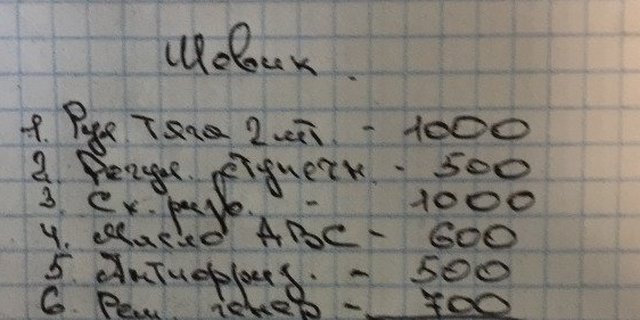 Шовик.
1. Рул. Тяга 2 шт. - 1000
2. Регул. ступечн. - 500
3. Ск. - 1000
4. Масло ДВС - 600
5. Антифриз. - 500
6. Рем. генер - 700